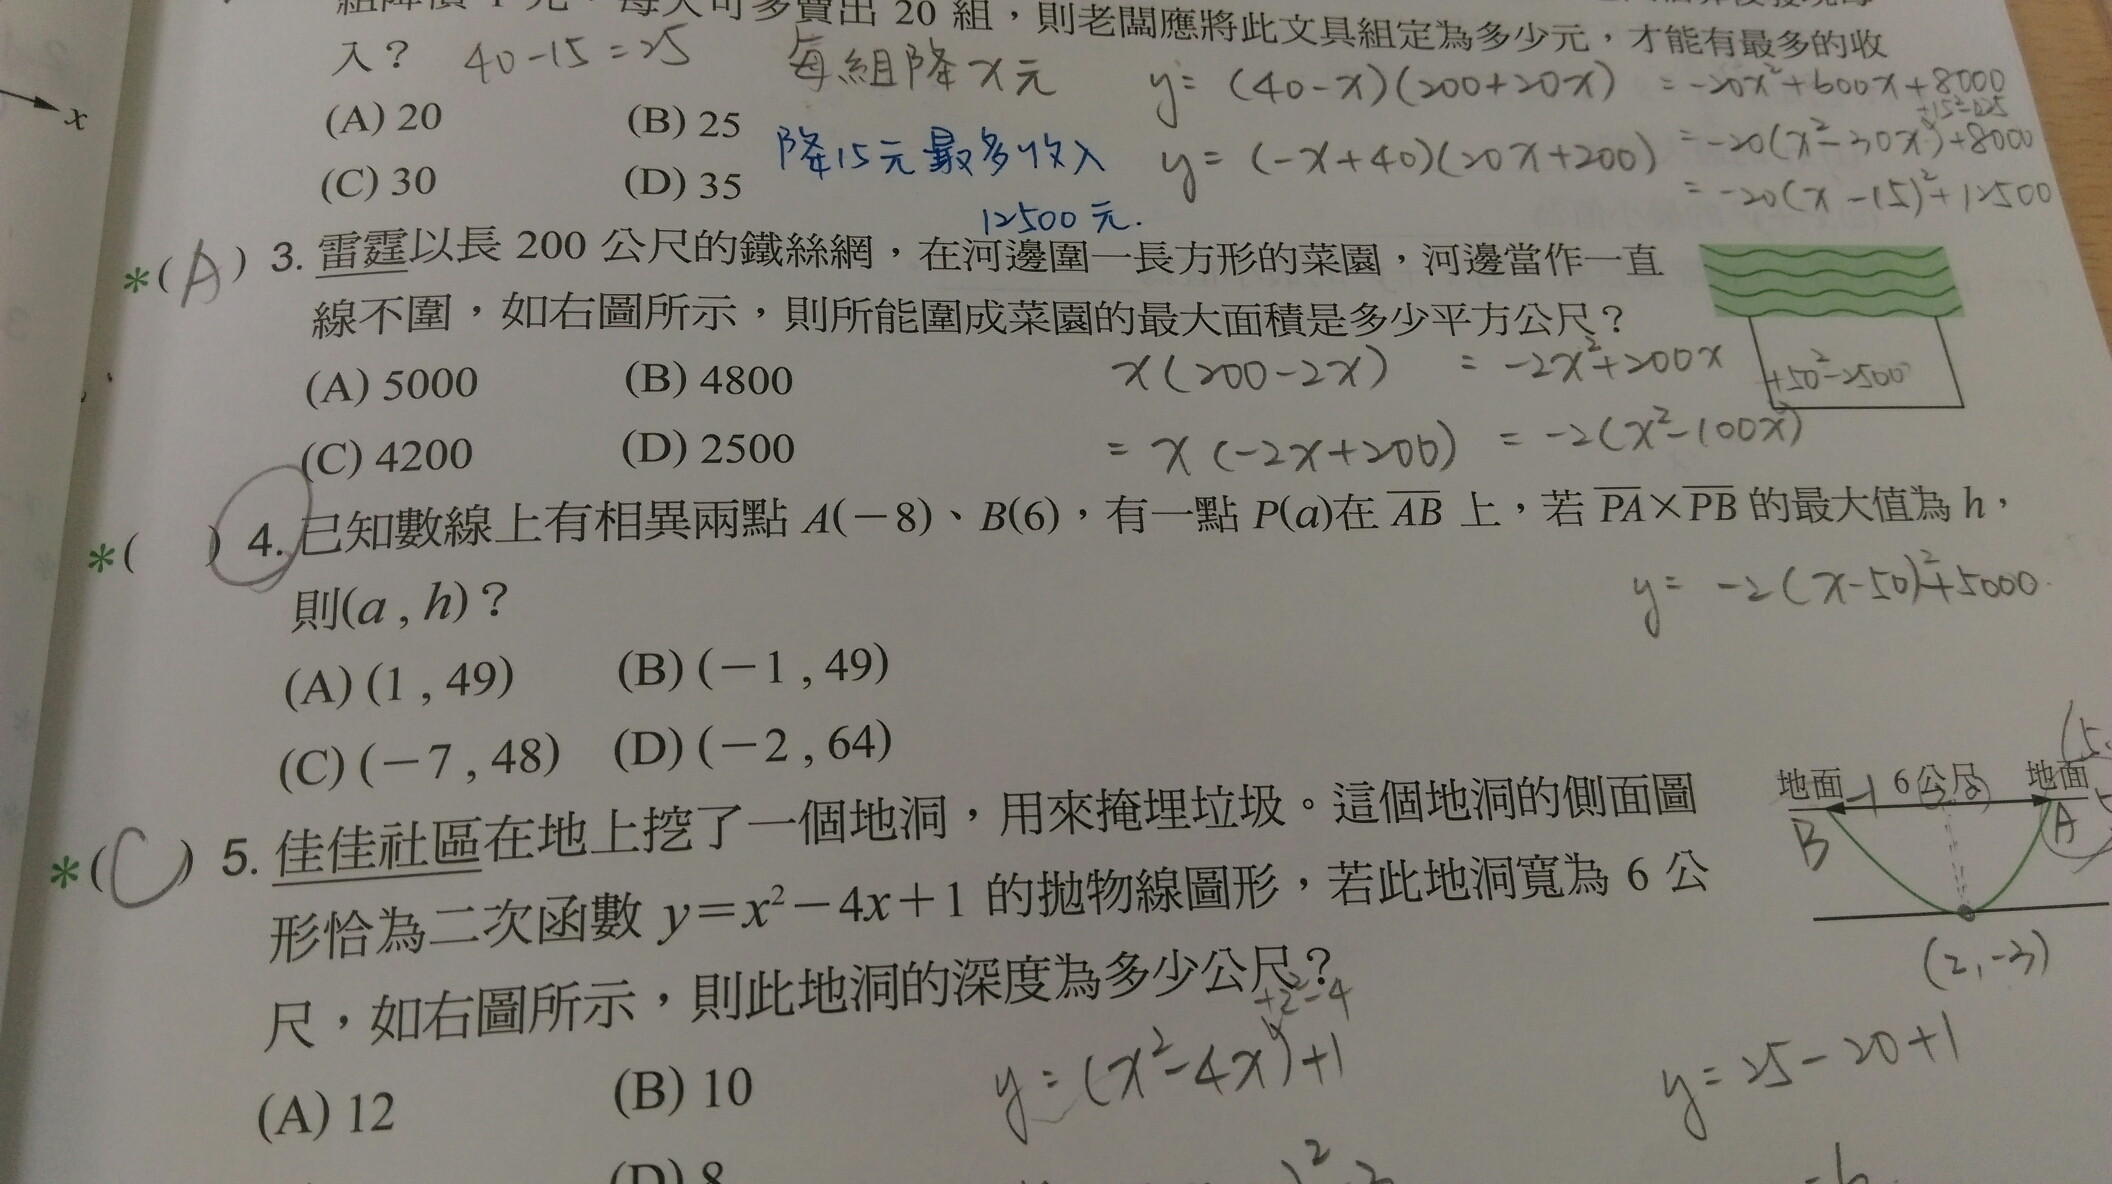 組降價 1 元，每天可多賣出 20 組，則老闆應將此文具組定為多少元，才能有最多的收
入？ 40-15=25 每組降x元
y=(40-x)(200+20x) =-20x²+600x+8000
+15²-225
(A) 20 (B) 25
降15元最多收入
y=(-x+40)(20x+200) =-20(x²-30x)+8000
(C) 30 (D) 35
=-20(x-15)²+12500
12500元.
x
*(A) 3. 雷霆以長 200 公尺的鐵絲網，在河邊圍一長方形的菜園，河邊當作一直
線不圍，如右圖所示，則所能圍成菜園的最大面積是多少平方公尺？
x(200-2x) =-2x²+200x
+50²-2500
(A) 5000 (B) 4800
=x(-2x+200) =-2(x²-100x)
(C) 4200 (D) 2500
*( ) 4. 已知數線上有相異兩點 A(－8)、B(6)，有一點 P(a)在 AB 上，若 PA×PB 的最大值為 h，
則(a , h)？
y=-2(x-50)²+5000.
(A) (1 , 49) (B) (－1 , 49)
(C) (－7 , 48) (D) (－2 , 64)
*(C) 5. 佳佳社區在地上挖了一個地洞，用來掩埋垃圾。這個地洞的側面圖
形恰為二次函數 y＝x²－4x＋1 的拋物線圖形，若此地洞寬為 6 公
尺，如右圖所示，則此地洞的深度為多少公尺？
地面 6公尺 地面
B A
(2,-3)
+2²-4
y=(x²-4x)+1
y=25-20+1
(A) 12 (B) 10
(D) 8